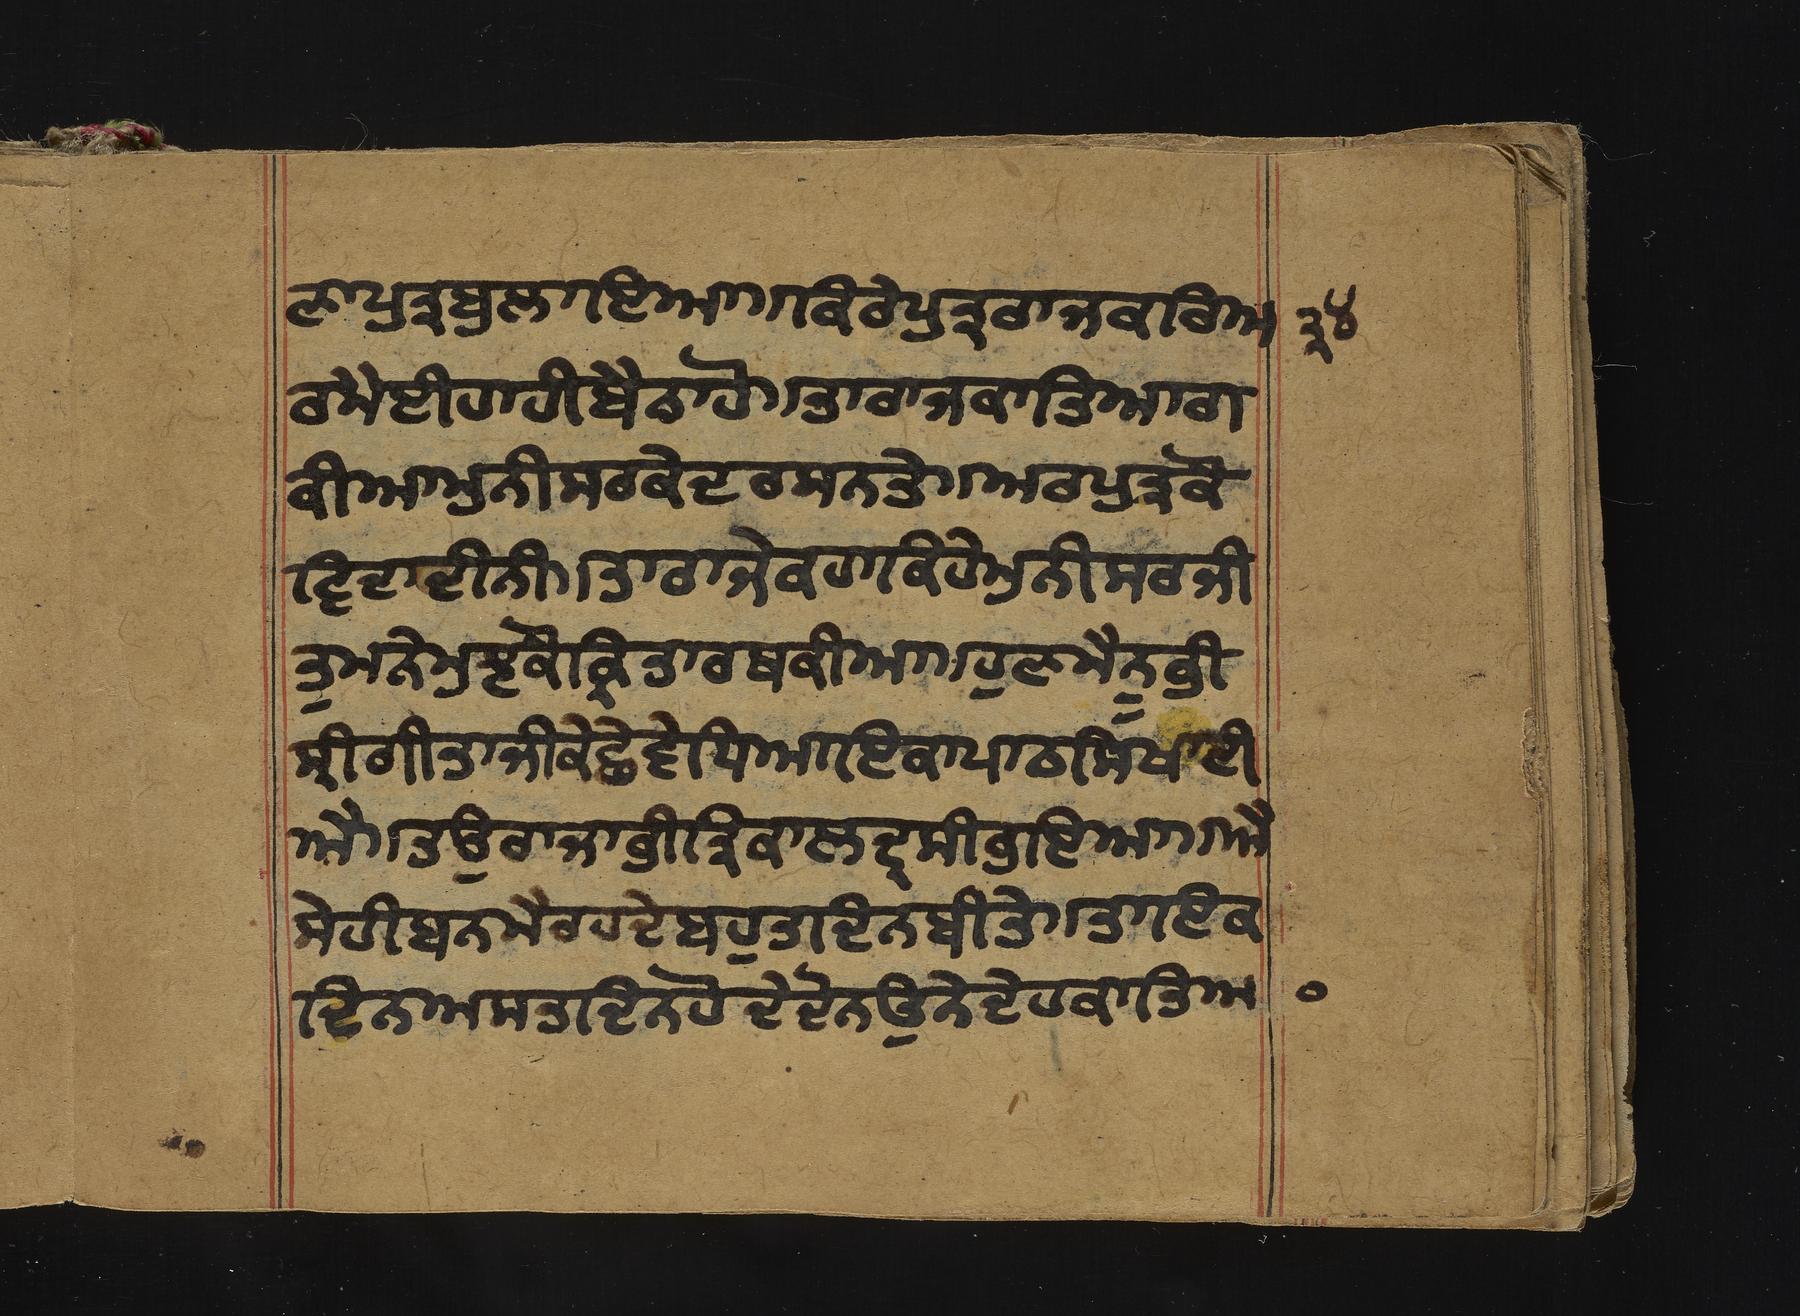 ਣਾਪੁਤ੍ਰਬੁਲਾਇਆ।ਕਿਰੇਪੁਤ੍ਰਰਾਜਕਰਿਅ ੩੪
ਰਮੈਈਹਾਹੀਬੈਠਾਹੋ।ਤਾਰਾਜਕਾਤਿਆਗ
ਕੀਆਮੁਨੀਸਰਕੇਦਰਸਨਤੇ।ਅਰਪੁਤ੍ਰਕੋ
ਵਿਦਾਦੀਨੀ।ਤਾਰਾਜੇਕਹਾਕਿਹੇਮੁਨੀਸਰਜੀ
ਤੁਮਨੇਮੁਝਕੌਕ੍ਰਿਤਾਰਥਕੀਆ।ਹੁਣਮੈਨੂਭੀ
ਸ੍ਰੀਗੀਤਾਜੀਕੇਛੇਵੇਧਿਆਇਕਾਪਾਠਸਿਖਾਈ
ਐ।ਤਉਰਾਜਾਭੀਤ੍ਰਿਕਾਲਦ੍ਰਸੀਭਇਆ।ਐ
ਸੇਹੀਬਨਮੈਰਹਦੇਬਹੁਤਦਿਨਬੀਤੇ।ਤਾਇਕ
ਦਿਨਅਸਤਦਿਨਹੋਦੇਦੋਨਉਨੇਦੇਹਕਾਤਿਅ ੦